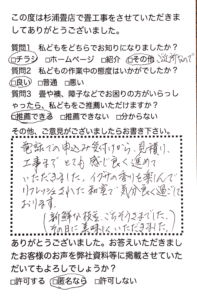 この度は杉浦畳店で畳工事をさせていただきま
してありがとうございました。
質問1 私どもをどちらでお知りになりましたか?
□チラシ □ホームページ □紹介 □その他 近所なので
質問2 私どもの作業中の態度はいかがでしたか?
□良い □普通 □悪い
質問3 畳や襖、障子などでお困りの方がいらっし
ゃったら、私どもをご推薦いただけますか?
□推薦できる □推薦できない □分からない
その他、ご意見がございましたらお書き下さい。
電話での申し込み受付から、見積り、
工事まで とても 感じ良く進めて
いただきました。イグサの香りを楽しんで
リフレッシュされた和室で気分良く過ごして
おります。
(新鮮な枝豆、ごちそうさまでした。
その日に美味しくいただきました。)
ありがとうございました。お答えいただきまし
たお客様のお声を弊社資料等に掲載させていた
だいてもよろしでしょうか?
□許可する □匿名なら □許可しない